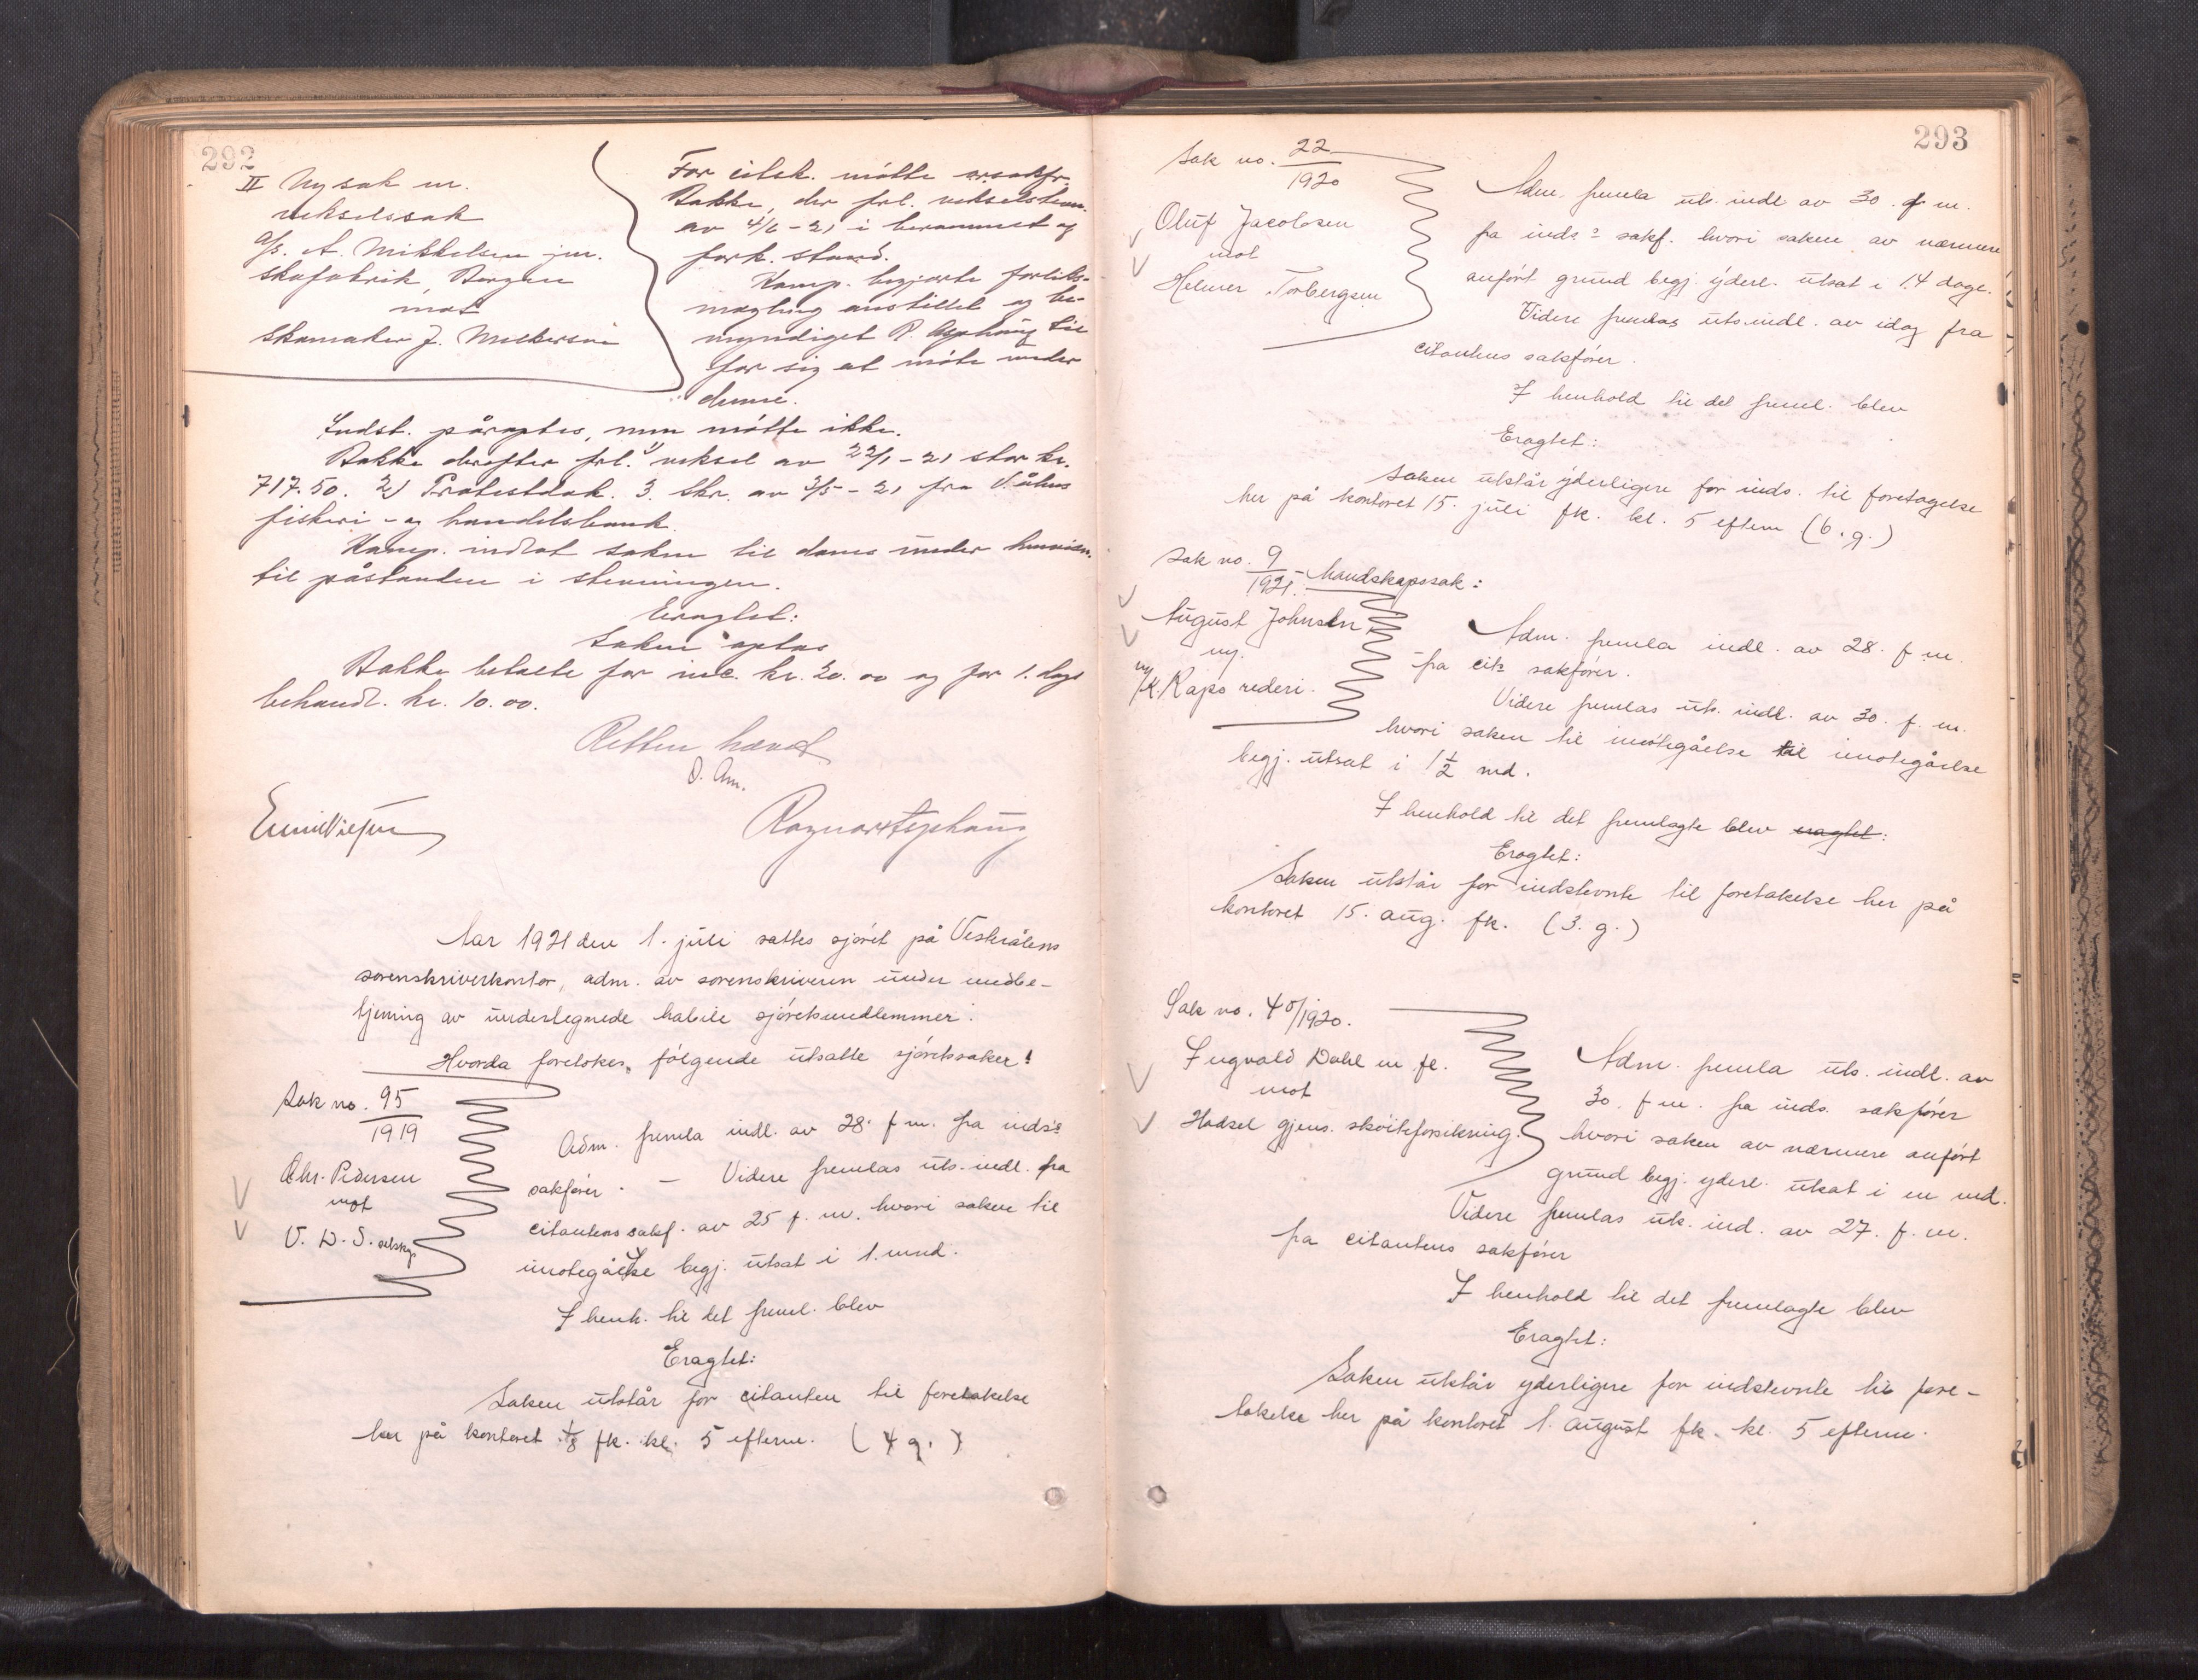 292
II Ny sak nr.
vekselssak
A/S. A. Mikkelsen jun.
skofabrik, Bergen
mot
skomaker J. Mikkersen
For citsk. møtte orsakfr.
Bakke, der frl. vekselstevn.
av 4/6-21 i berammet og
fork. stand.
Komp. begjærte forliks-
mægling anstillet og be-
myndiget R. Asphaug til
for sig at møte under
denne.
Indst. påroptes, men møtte ikke.
Bakke derefter frl. 1) veksel av 22/1-21 stor kr.
717.50. 2) Protestdok. 3. Skr. av 3/5-21 fra
fiskeri- og handelsbank.
Komp. indlot saken til doms under henvisn.
til påstanden i stevningen.
Eragtet:
Saken optas
Bakke betalte for inc. kr. 20.00 og for 1. dags
behandl. kr. 10.00.
Retten hævet
Ragnar Asphaug
Aar 1921 den 1. juli sattes sjøret på Vesterålens
sorenskriverkontor, adm. av sorenskriveren under medbe-
tjening av undertegnede habile sjøretsmedlemmer.
Hvorda foretokes følgende utsatte sjøretssaker!
Sak no. 95
1919
Chr. Pedersen
mot
V. D. S. selskap
Adm. fremla indl. av 28. f m. fra inds's
sakfører. - Videre fremlas uts. indl. fra
citantens sakf. av 25 f. m. hvori saken til
imotegåelse begj. utsat i 1. mnd.
I henh. til det freml. blev
Eragtet:
Saken utstår for citanten til foretakelse
her på kontoret 1/8 fk. kl. 5 efterm. (4 g.)
293
Sak no. 22
1920
Oluf Jacobsen
mot
Helmer Torbergsen
Adm. fremla uts. indl av 30. f m.
fra inds's sakf. hvori saken av nærmere
anført grund begj. yderl. utsat i 14 dage.
Videre fremlas uts. indl. av idag fra
citantens sakfører.
I henhold til det freml. blev
Eragtet:
Saken utstår yderligere for inds. til foretagelse
her på kontoret 15. juli fk. kl. 5 efterm (6. g.)
Sak no. 9
1921. - mandskapssak:
August Johnsen
mot
Kaps rederi.
Adm. fremla indl. av 28. f m.
fra cits sakfører.
Videre fremlas uts. indl. av 30. f. m.
hvori saken til imøtegåelse til imotegåelse
begj. utsat i 1 1/2 md.
I henhold til det fremlagte blev eragtet:
Eragtet:
Saken utstår for indstevnte til foretakelse her på
kontoret 15. aug. fk. (3. g.)
Sak no. 40/1920.
Ingvald Dahl m fl.
mot
Hadsel gjens. skøiteforsikring.
Adm. fremla uts. indl. av
30. f m. fra inds. sakfører
hvori saken av nærmere anført
grund begj. yderl. utsat i en md.
Videre fremlas uts. ind. av 27. f. m.
fra citantens sakfører
I henhold til det fremlagte blev
Eragtet:
Saken utstår yderligere for indstevnte til fore-
takelse her på kontoret 1. august fk. kl. 5 efterm.